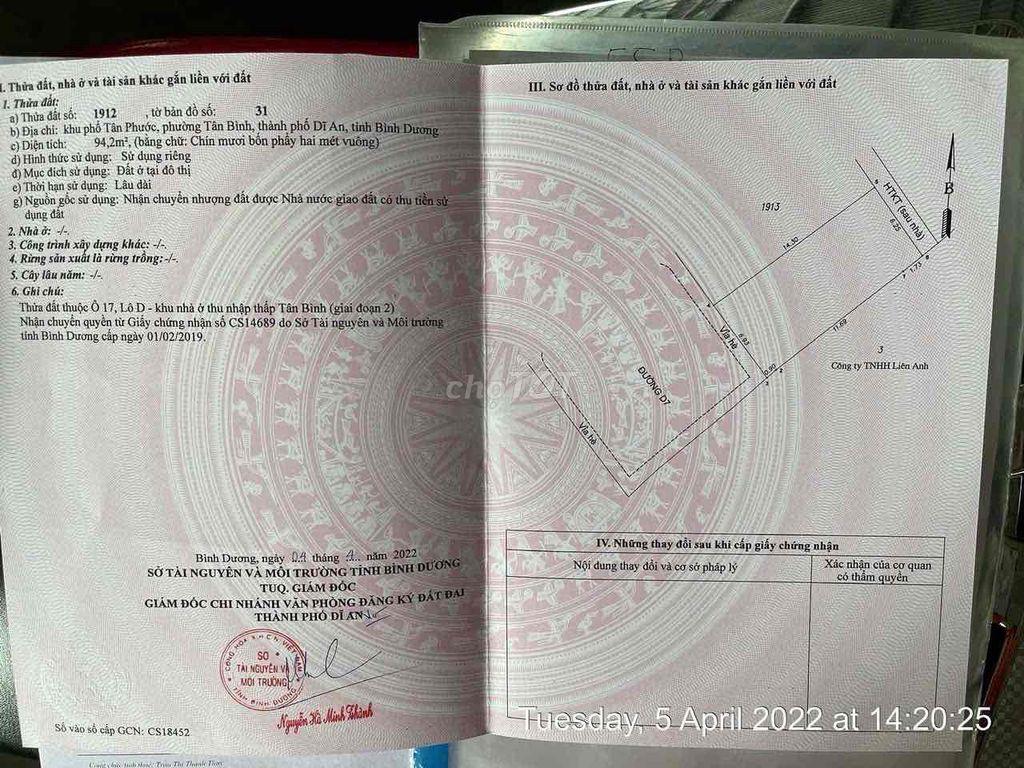 I. Thửa đất, nhà ở và tài sản khác gắn liền với đất
1. Thửa đất:
a) Thửa đất số: 1912 , tờ bản đồ số: 31
b) Địa chỉ: khu phố Tân Phước, phường Tân Bình, thành phố Dĩ An, tỉnh Bình Dương
c) Diện tích: 94,2m², (bằng chữ: Chín mươi bốn phẩy hai mét vuông)
d) Hình thức sử dụng: Sử dụng riêng
đ) Mục đích sử dụng: Đất ở tại đô thị
e) Thời hạn sử dụng: Lâu dài
g) Nguồn gốc sử dụng: Nhận chuyển nhượng đất được Nhà nước giao đất có thu tiền sử
dụng đất
2. Nhà ở: -/-.
3. Công trình xây dựng khác: -/-.
4. Rừng sản xuất là rừng trồng:-/-.
5. Cây lâu năm: -/-.
6. Ghi chú:
Thửa đất thuộc Ô 17, Lô D - khu nhà ở thu nhập thấp Tân Bình (giai đoạn 2)
Nhận chuyển quyền từ Giấy chứng nhận số CS14689 do Sở Tài nguyên và Môi trường
tỉnh Bình Dương cấp ngày 01/02/2019.
Bình Dương, ngày tháng năm 2022
SỞ TÀI NGUYÊN VÀ MÔI TRƯỜNG TỈNH BÌNH DƯƠNG
TUQ. GIÁM ĐỐC
GIÁM ĐỐC CHI NHÁNH VĂN PHÒNG ĐĂNG KÝ ĐẤT ĐAI
THÀNH PHỐ DĨ AN
CỘNG HÒA X.H.C.N VIỆT NAM
SỞ
TÀI NGUYÊN VÀ
MÔI TRƯỜNG
TỈNH BÌNH DƯƠNG
Nguyễn Hà Minh Thành
Số vào sổ cấp GCN: CS18452
III. Sơ đồ thửa đất, nhà ở và tài sản khác gắn liền với đất
B
HTKT (sau nhà)
1913
6.25
14.30
1.73
6.93
Vỉa hè
11.69
0.90
3
Công ty TNHH Liên Anh
ĐƯỜNG D7
Vỉa hè
chợTỐT
IV. Những thay đổi sau khi cấp giấy chứng nhận
Nội dung thay đổi và cơ sở pháp lý
Xác nhận của cơ quan
có thẩm quyền
Tuesday, 5 April 2022 at 14:20:25